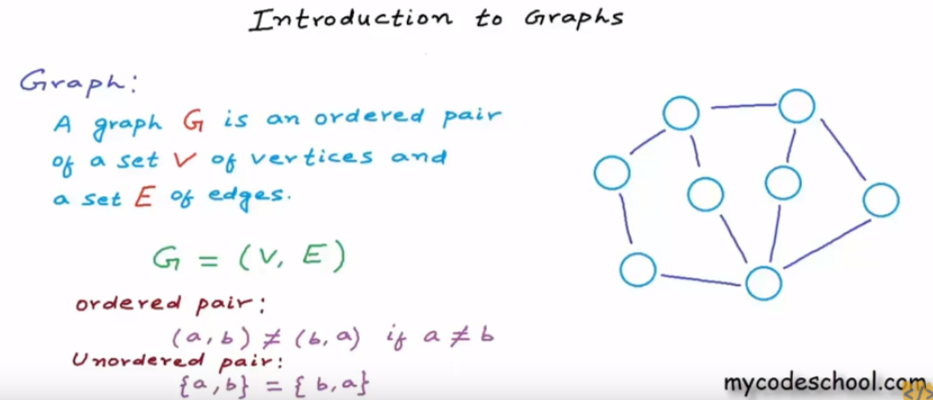 Introduction to Graphs
Graph:
A graph G is an ordered pair
of a set V of vertices and
a set E of edges.
G = (V, E)
ordered pair:
(a, b) ≠ (b, a) if a ≠ b
Unordered pair:
{a, b} = {b, a}
mycodeschool.com